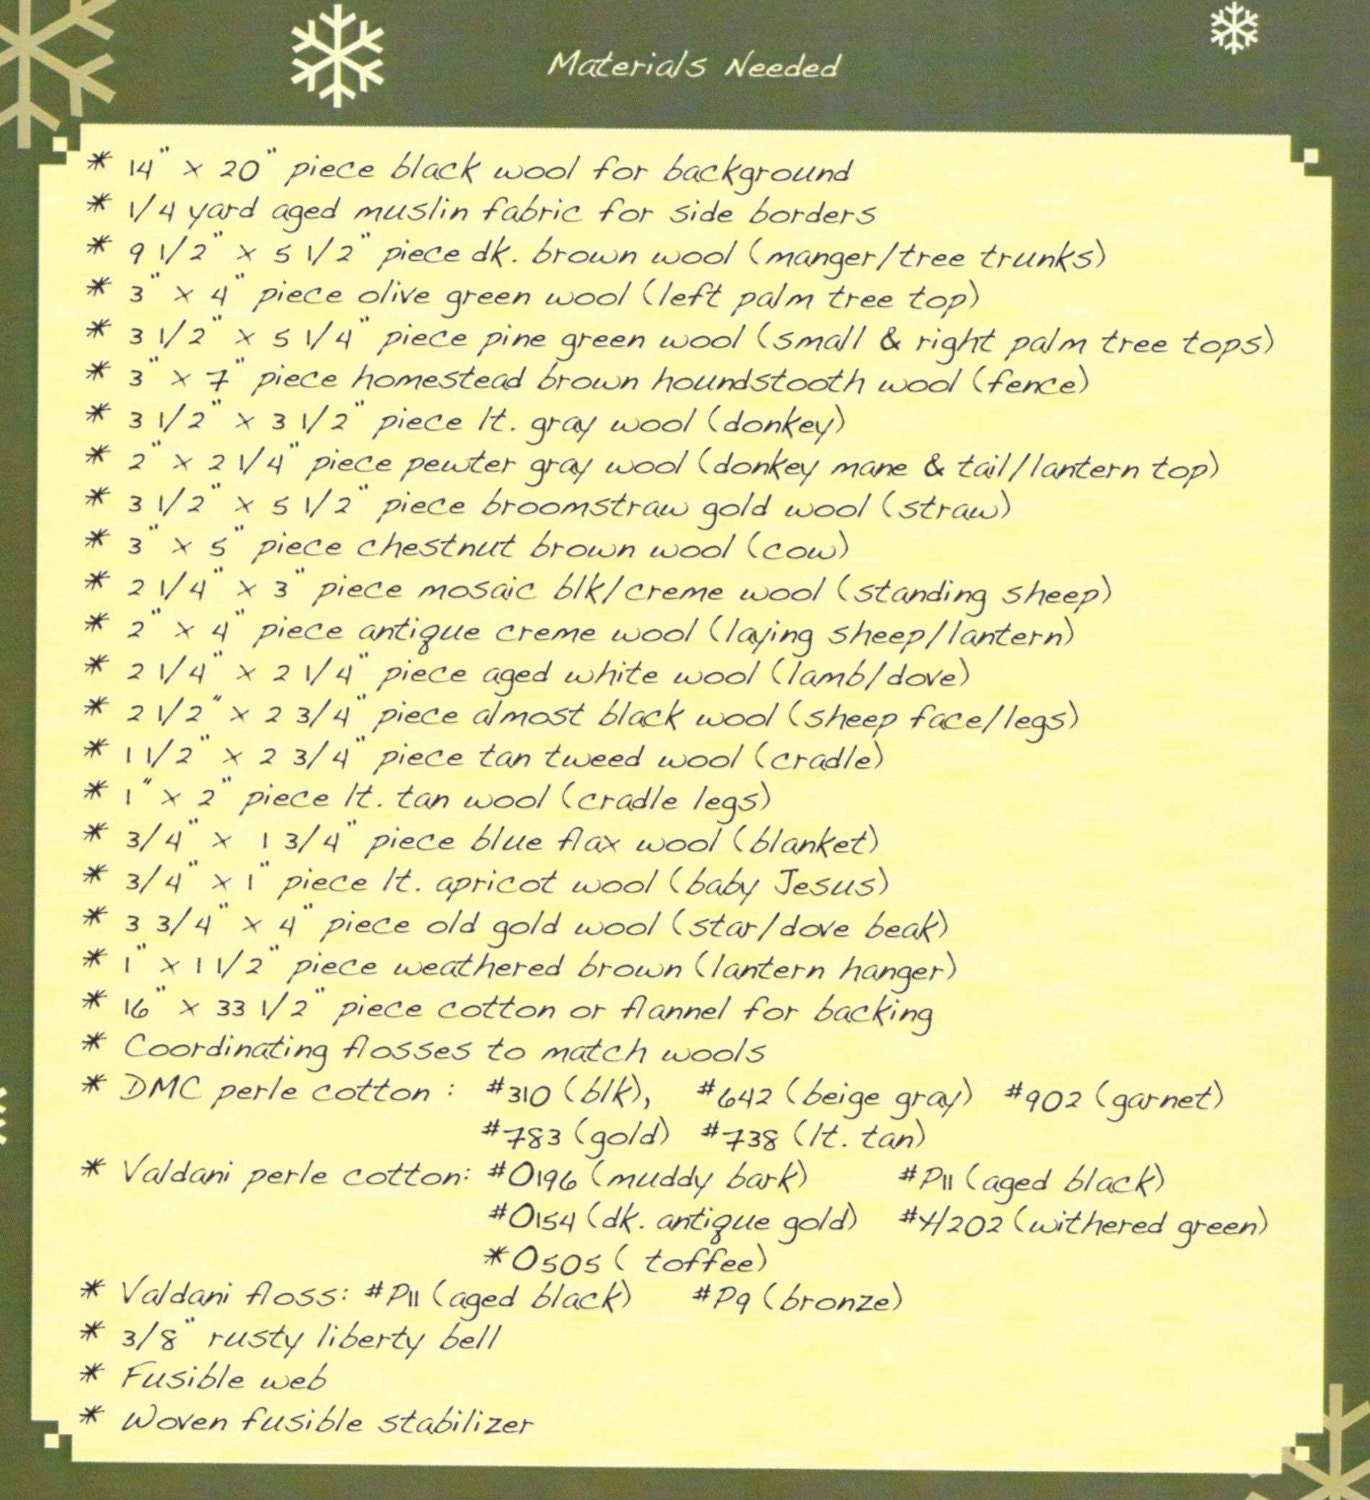 Materials Needed
* 14" x 20" piece black wool for background
* 1/4 yard aged muslin fabric for side borders
* 9 1/2" x 5 1/2" piece dk. brown wool (manger/tree trunks)
* 3" x 4" piece olive green wool (left palm tree top)
* 3 1/2" x 5 1/4" piece pine green wool (small & right palm tree tops)
* 3" x 7" piece homestead brown houndstooth wool (fence)
* 3 1/2" x 3 1/2" piece lt. gray wool (donkey)
* 2" x 2 1/4" piece pewter gray wool (donkey mane & tail/lantern top)
* 3 1/2" x 5 1/2" piece broomstraw gold wool (straw)
* 3" x 5" piece chestnut brown wool (cow)
* 2 1/4" x 3" piece mosaic blk/creme wool (standing sheep)
* 2" x 4" piece antique creme wool (laying sheep/lantern)
* 2 1/4" x 2 1/4" piece aged white wool (lamb/dove)
* 2 1/2" x 2 3/4" piece almost black wool (sheep face/legs)
* 1 1/2" x 2 3/4" piece tan tweed wool (cradle)
* 1" x 2" piece lt. tan wool (cradle legs)
* 3/4" x 1 3/4" piece blue flax wool (blanket)
* 3/4" x 1" piece lt. apricot wool (baby Jesus)
* 3 3/4" x 4" piece old gold wool (star/dove beak)
* 1" x 1 1/2" piece weathered brown (lantern hanger)
* 16" x 33 1/2" piece cotton or flannel for backing
* Coordinating flosses to match wools
* DMC perle cotton : #310 (blk), #642 (beige gray) #902 (garnet)
#783 (gold) #738 (lt. tan)
* Valdani perle cotton: #O196 (muddy bark) #P11 (aged black)
#O154 (dk. antique gold) #H202 (withered green)
*O505 ( toffee)
* Valdani floss: #P11 (aged black) #P9 (bronze)
* 3/8" rusty liberty bell
* Fusible web
* Woven fusible stabilizer